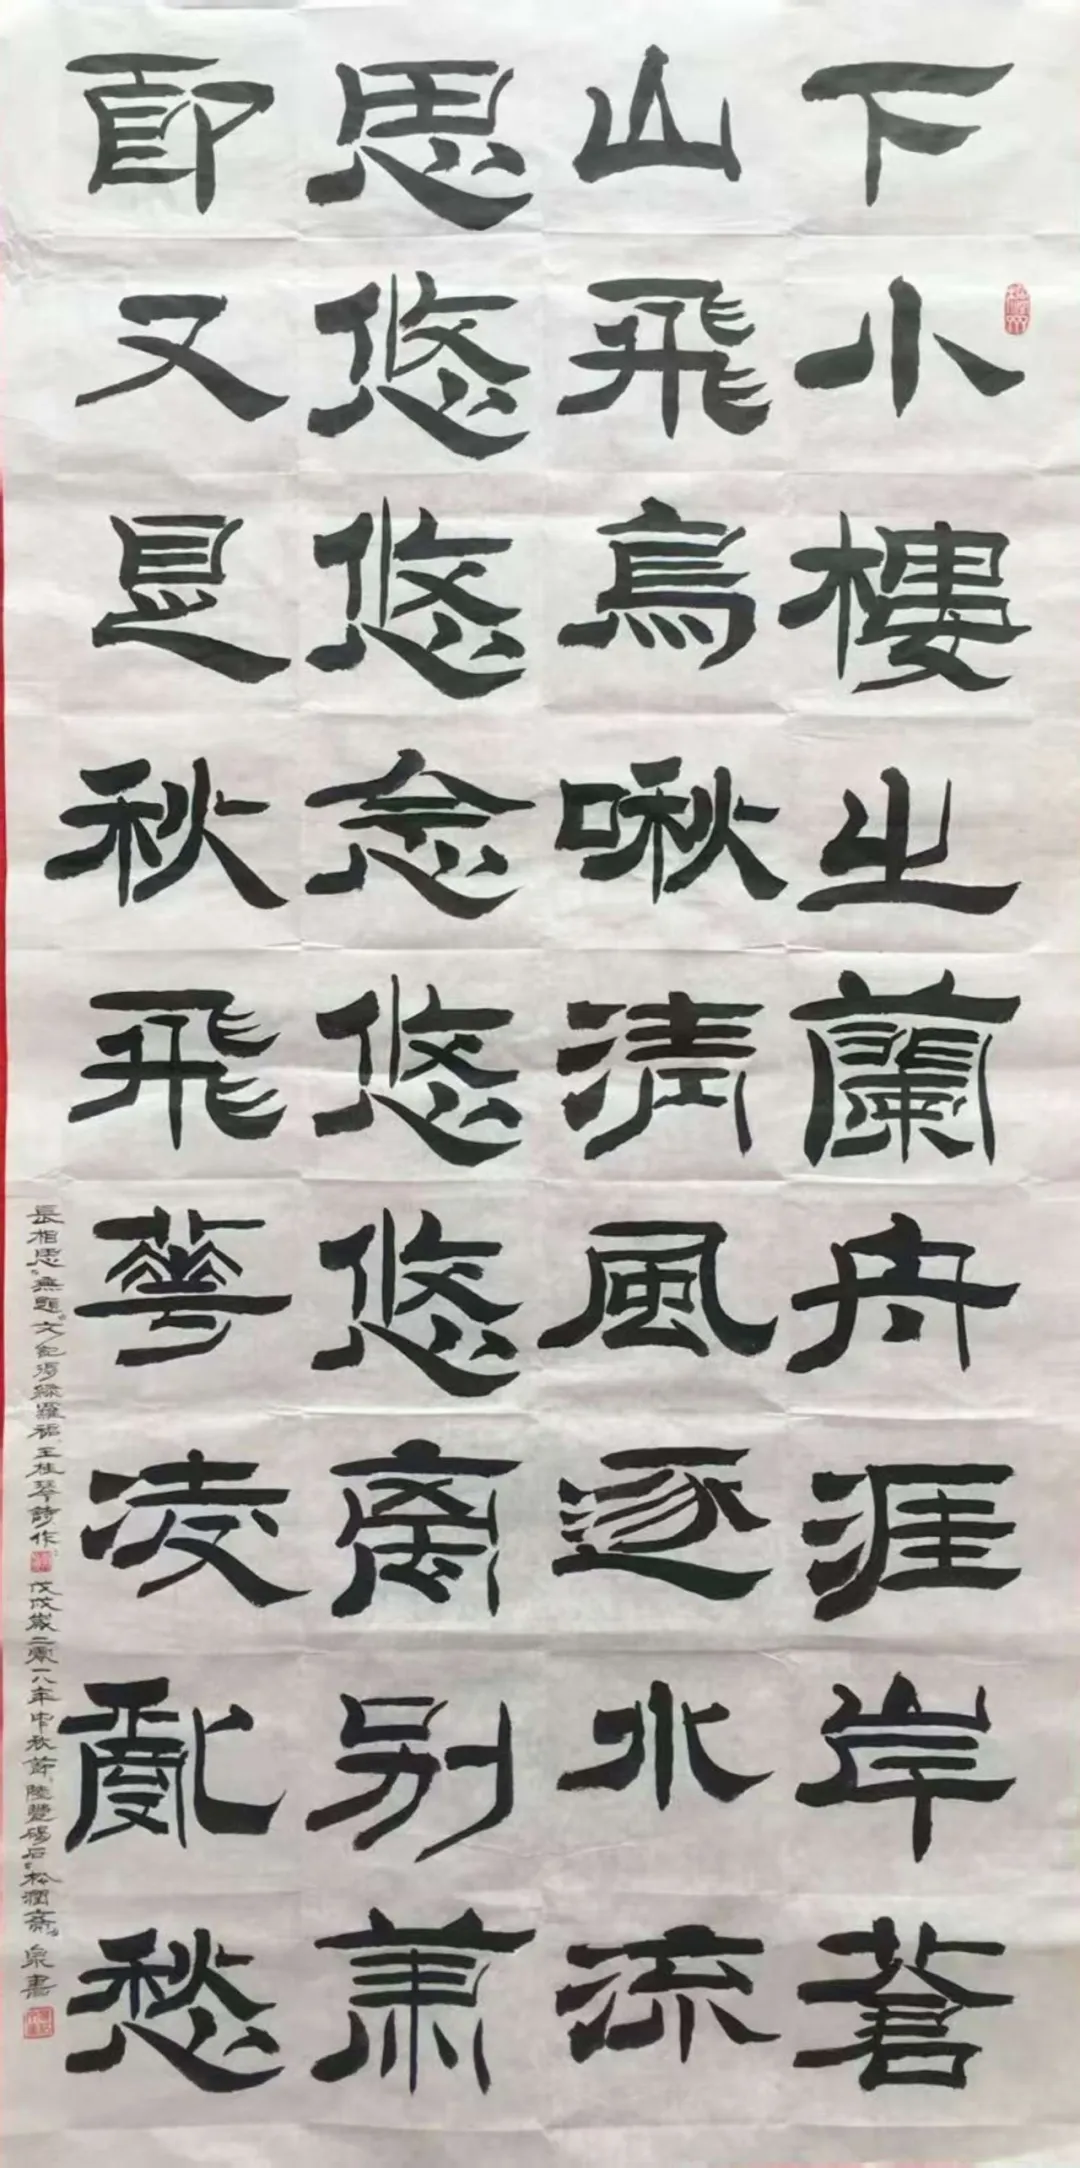 下小樓之蘭舟涯岸蒼
山飛鳥啾清風逐水流
思悠悠念悠悠离別蕭
郎又是秋飛華凌亂愁
長相思。無題。綠羅裙王桂琴詩作。戊戌歲二零一八年中秋節陸豐碣石松潤齋泉書